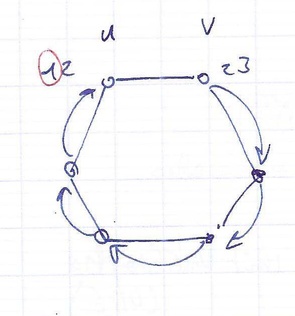 u V
12 23